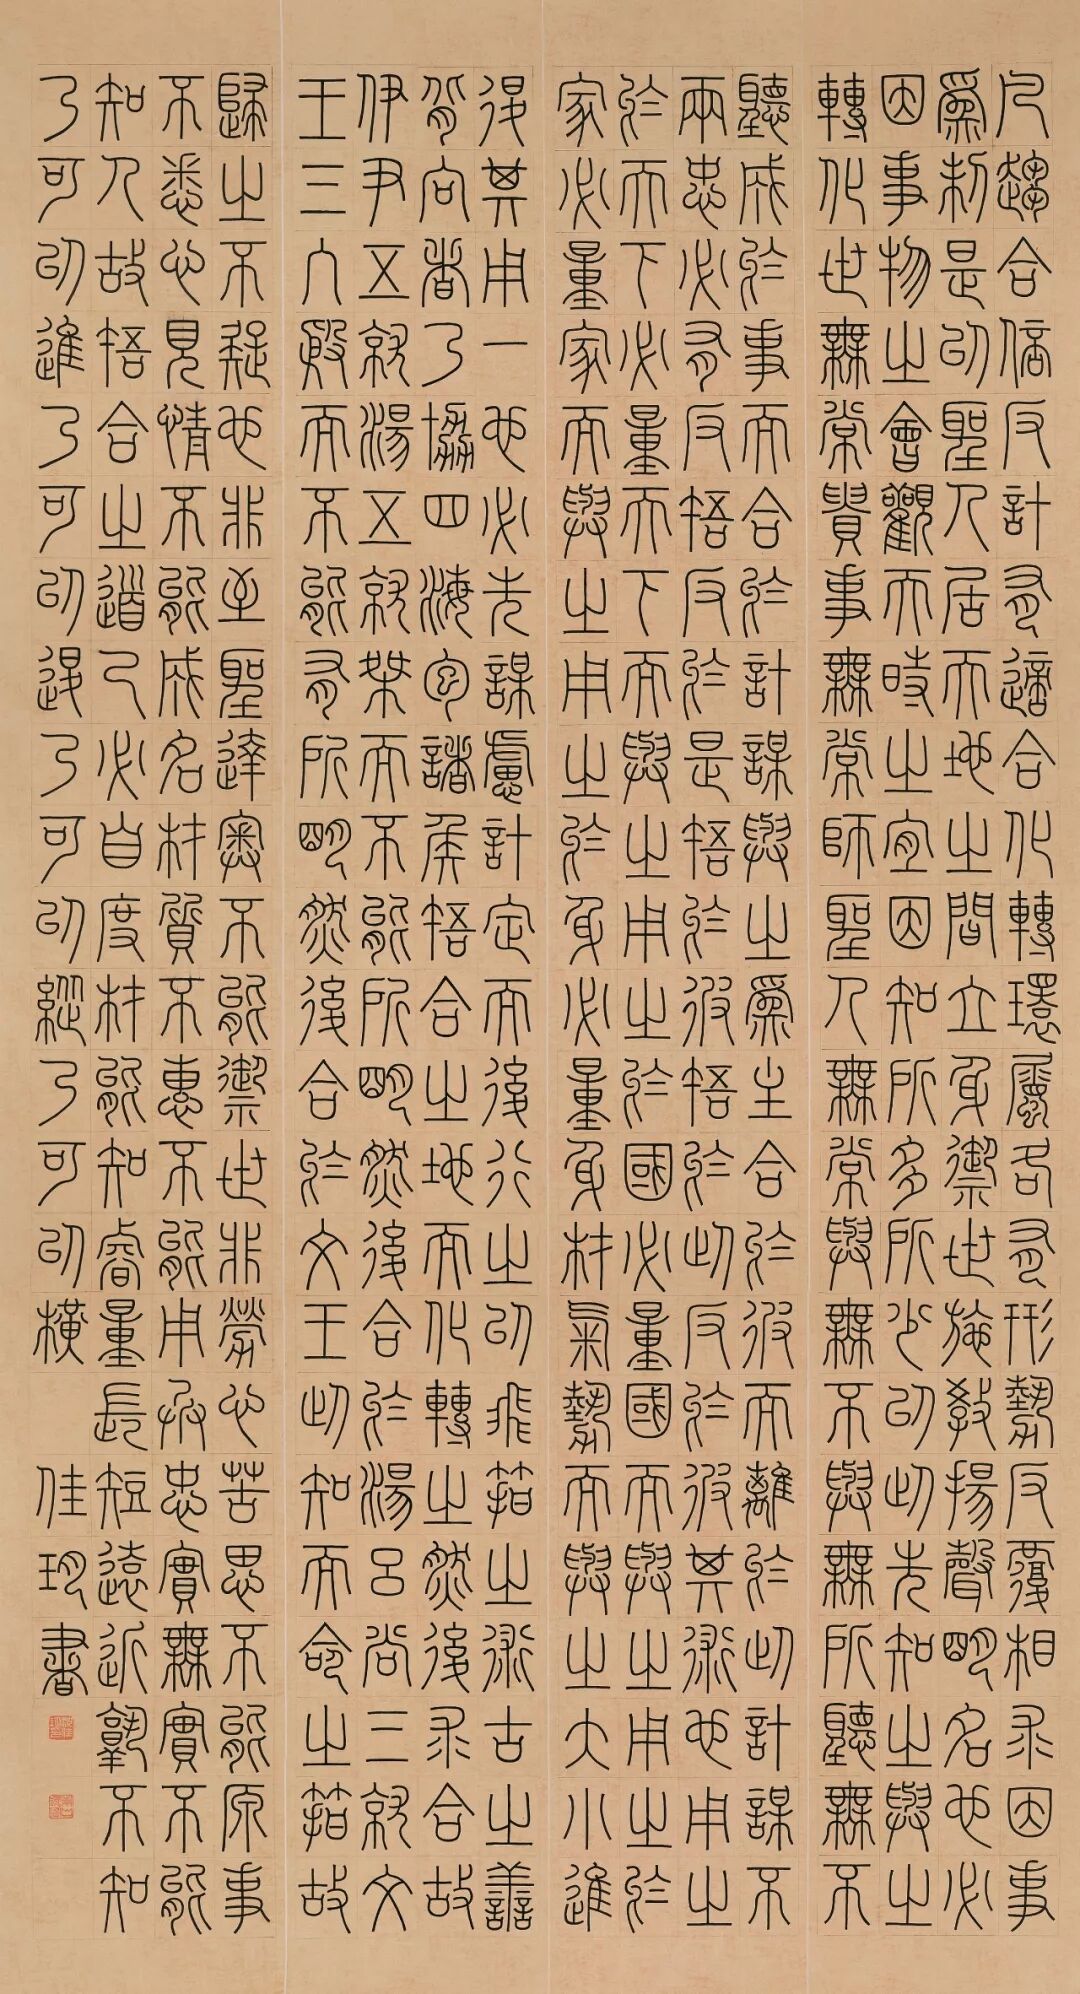 凡趨合倍反計有適合化轉環屬各有形勢反覆相求因事
為制是以聖人居天地之間立身御世施教揚聲明名也必
因事物之會觀天時之宜因知所多所少以此先知之與之
轉化世無常貴事無常師聖人無常與無不與無所聽無不
聽成於事而合於計謀與之為主合於彼而離於此計謀不
兩忠必有反忤反於是忤於彼忤於此反於彼其術也用之
於天下必量天下而與之用之於國必量國而與之用之於
家必量家而與之用之於身必量身材氣勢而與之大小進
退其用一也必先謀慮計定而後行之以飛箝之術古之善
背向者乃協四海包諸侯忤合之地而化轉之然後求合故
伊尹五就湯五就桀而不能所明然後合於湯呂尚三就文
王三入殷而不能有所明然後合於文王此知天命之箝故
歸之不疑也非至聖達奧不能御世非勞心苦思不能原事
不悉心見情不能成名材質不惠不能用兵忠實無實不能
知人故忤合之道己必自度材能知睿量長短遠近孰不知
乃可以進乃可以退乃可以縱乃可以橫
佳書